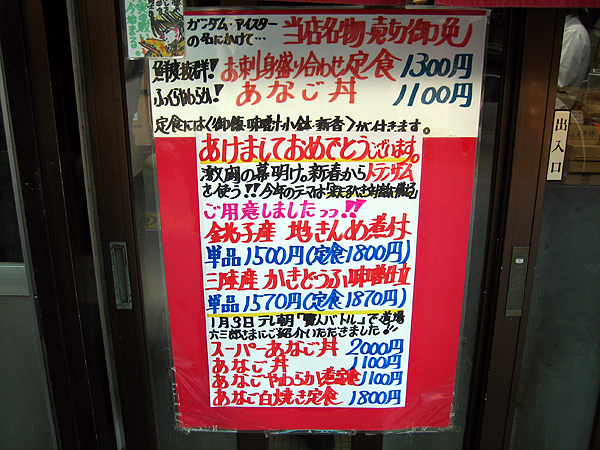 ガンダム・アイスター
の名にかけて…
当店名物・売切御免
鮮度抜群!
お刺身盛り合わせ定食 1300円
ふっくらやわらか!
あなご丼 1100円
定食には〈御飯・味噌汁・小鉢・新香〉が付きます。
あけましておめでとうございます。
激闘の幕明け。新春から
を使う!! 今年のテーマは
ご用意しましたっっ!!
銚子産 地きんめ煮付
単品1500円(定食1800円)
三陸産 かきどうふ味噌仕立
単品1570円(定食1870円)
1月3日テレ朝「
六三郎さまにご紹介いただきました!!
スーパーあなご丼 2000円
あなご丼 1100円
あなごやわらか煮定食 1100円
あなご白焼き定食 1800円
出入口